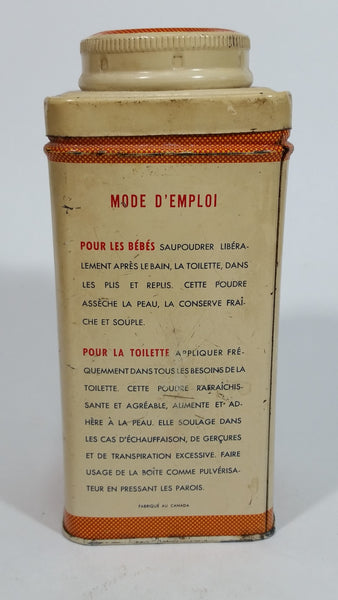 MODE D'EMPLOI
POUR LES BÉBÉS SAUPOUDRER LIBÉRA-
LEMENT APRÈS LE BAIN, LA TOILETTE, DANS
LES PLIS ET REPLIS. CETTE POUDRE
ASSÈCHE LA PEAU, LA CONSERVE FRAÎ-
CHE ET SOUPLE.
POUR LA TOILETTE APPLIQUER FRÉ-
QUEMMENT DANS TOUS LES BESOINS DE LA
TOILETTE. CETTE POUDRE RAFRAÎCHIS-
SANTE ET AGRÉABLE, ALIMENTE ET AD-
HÈRE À LA PEAU. ELLE SOULAGE DANS
LES CAS D'ÉCHAUFFAISON, DE GERÇURES
ET DE TRANSPIRATION EXCESSIVE. FAIRE
USAGE DE LA BOÎTE COMME PULVÉRISA-
TEUR EN PRESSANT LES PAROIS.
FABRIQUÉ AU CANADA